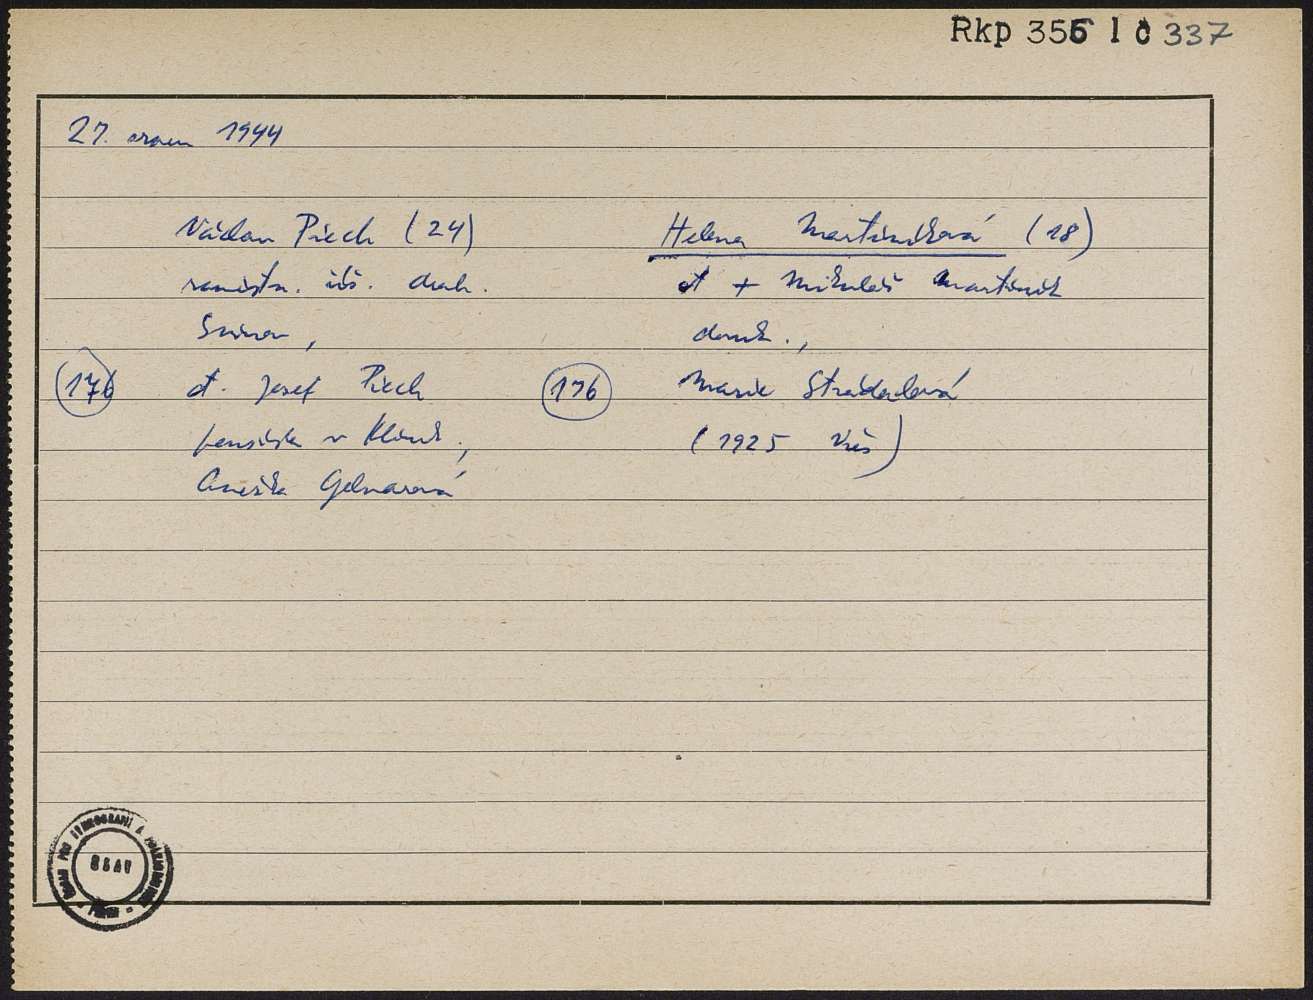 Rkp 356 l č 337
27. srpen 1944
Václav Piech (24)
zaměstn. žel. drah.
Svinov,
176 ot. Josef Piech
pensista v Klimk.,
Anežka Gelnarová
Helena Martiníková (18)
ot + Mikuláš Martiník
domk.,
176 Marie Strádalová
(1925 Viš)
ČSAV